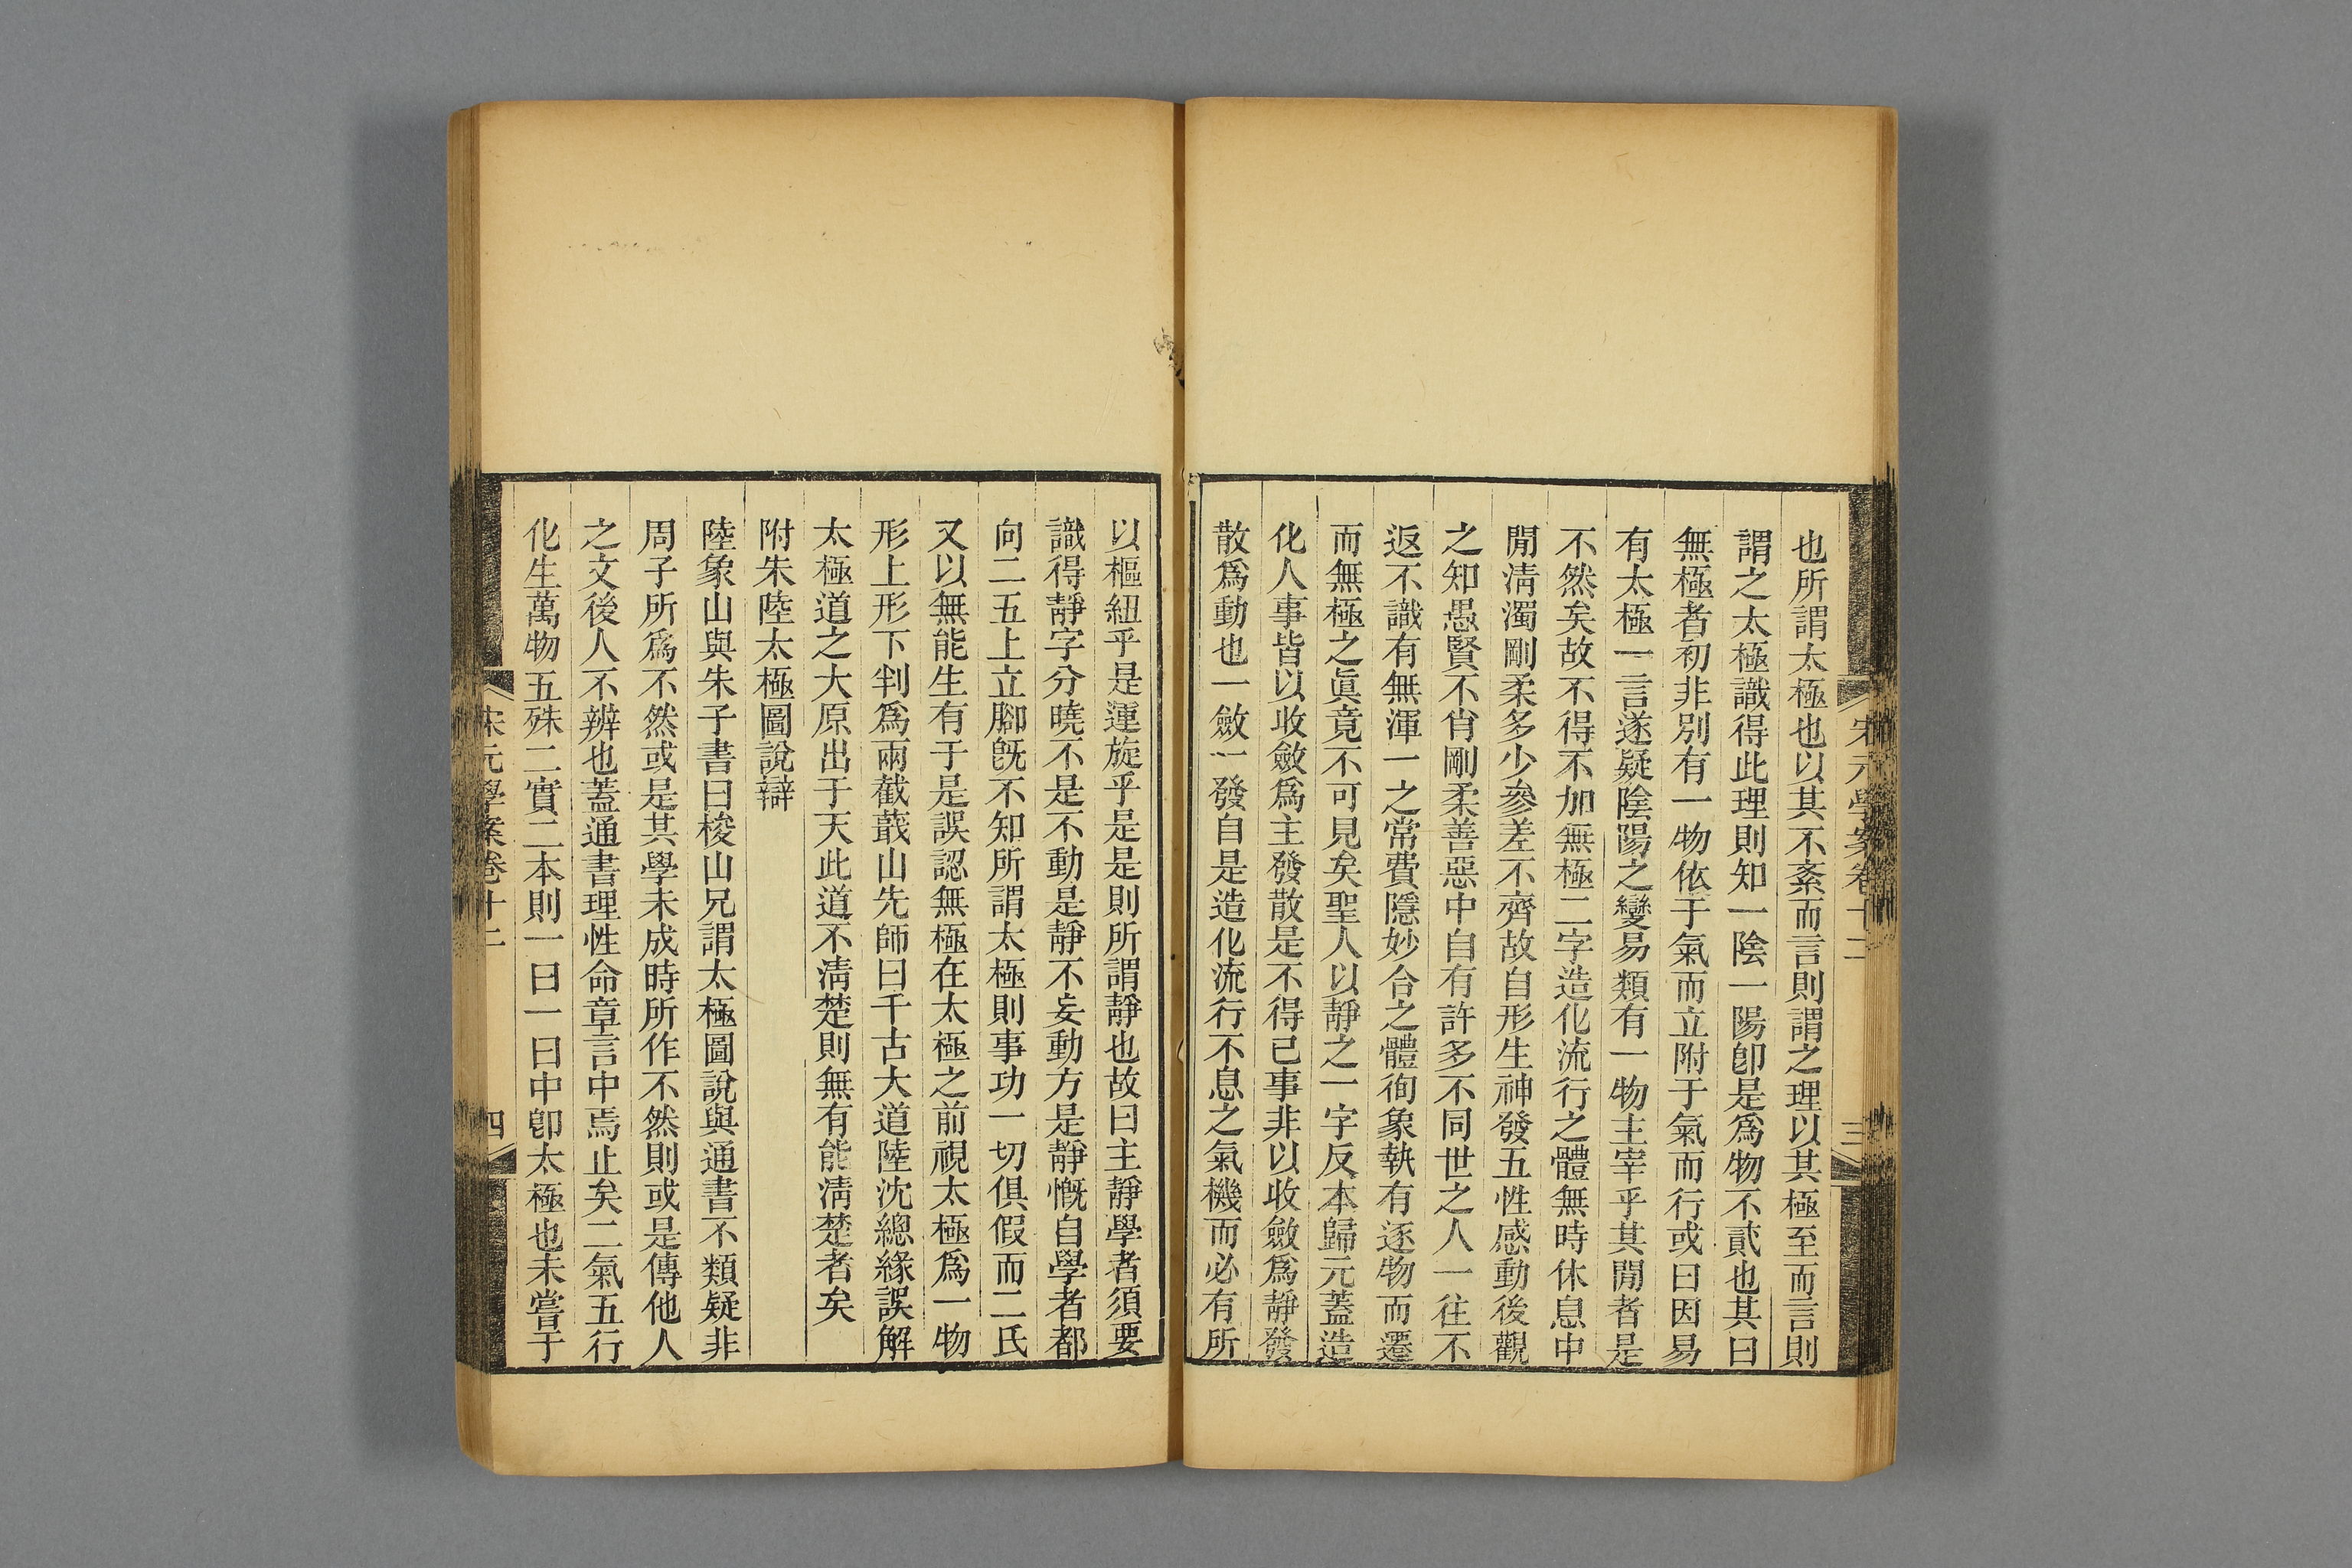 宋元學案卷十二
三
也所謂太極也以其不紊而言則謂之理以其極至而言則
謂之太極識得此理則知一陰一陽卽是爲物不貳也其曰
無極者初非別有一物依于氣而立附于氣而行或曰因易
有太極一言遂疑陰陽之變易類有一物主宰乎其閒者是
不然矣故不得不加無極二字造化流行之體無時休息中
閒淸濁剛柔多少參差不齊故自形生神發五性感動後觀
之知愚賢不肖剛柔善惡中自有許多不同世之人一往不
返不識有無渾一之常費隱妙合之體徇象執有逐物而遷
而無極之眞竟不可見矣聖人以靜之一字反本歸元蓋造
化人事皆以收斂爲主發散是不得已事非以收斂爲靜發
散爲動也一斂一發自是造化流行不息之氣機而必有所
以樞紐乎是運旋乎是是則所謂靜也故曰主靜學者須要
識得靜字分曉不是不動是靜不妄動方是靜慨自學者都
向二五上立腳旣不知所謂太極則事功一切俱假而二氏
又以無能生有于是誤認無極在太極之前視太極爲一物
形上形下判爲兩截蕺山先師曰千古大道陸沈總緣誤解
太極道之大原出于天此道不淸楚則無有能淸楚者矣
附朱陸太極圖說辯
陸象山與朱子書曰梭山兄謂太極圖說與通書不類疑非
周子所爲不然或是其學未成時所作不然則或是傳他人
之文後人不辨也蓋通書理性命章言中焉止矣二氣五行
化生萬物五殊二實二本則一曰一曰中卽太極也未嘗于
宋元學案卷十二
四